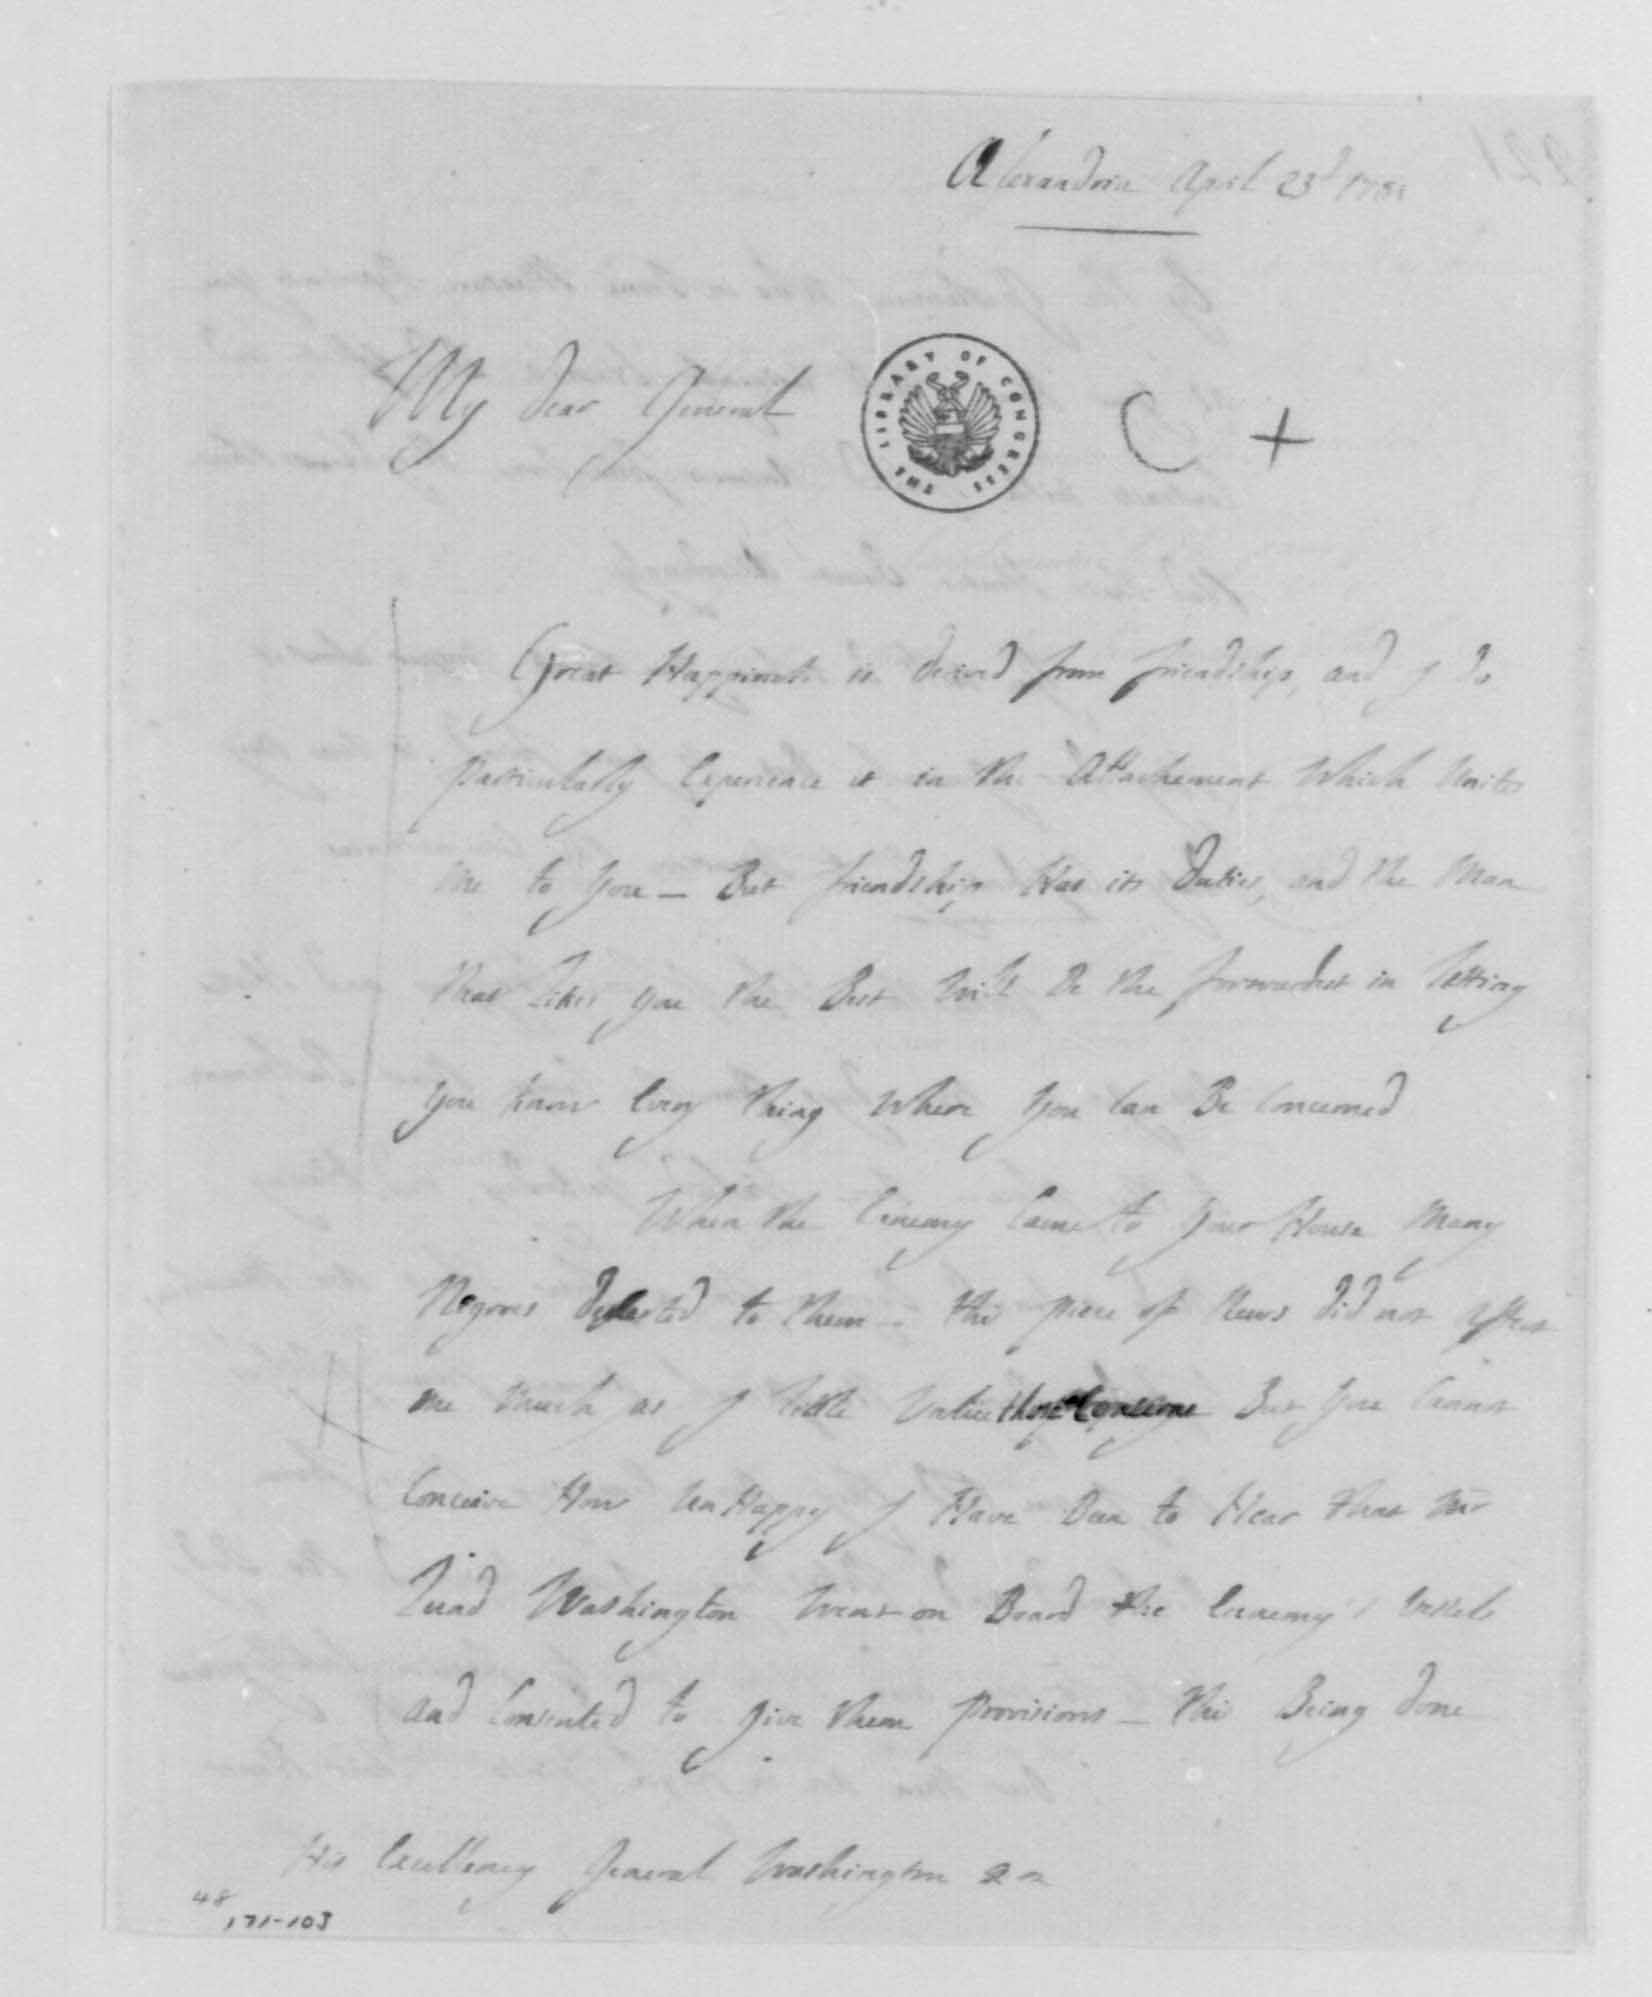 Alexandria April 23d 1781
My dear General
THE LIBRARY OF CONGRESS
C +
Great Happiness is derived from friendship, and I do
particularly Experience it in the Attachement Which Unites
me to you — But friendship Has its duties, and the Man
that Likes you the Best Will Be the forwardest in Letting
you know Every thing Where you Can Be Concerned
When the Ennemy Came to your House Many
Negroes deserted to them — this piece of News did not affect
me much as I little Value those Concerns But you Cannot
Conceive How UnHappy I Have Been to Hear that Mr
Lund Washington Went on Board the Ennemy's Vessels
and Consented to give them provisions — this Being done
His Excellency General Washington &a
48
171-103